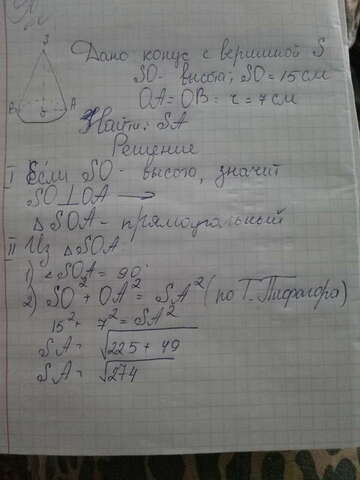 S
B
A
Дано конус с вершиной S
SO - высота; SO = 15 см
OA = OB = r = 7 см
Найти: SA
Решение
I Если SO - высота, значит
SO ⊥ OA →
△ SOA - прямоугольный
II Из △SOA
1) ∠SOA = 90°
2) SO² + OA² = SA² (по Т. Пифагора)
15² + 7² = SA²
SA = √225 + 49
SA = √274